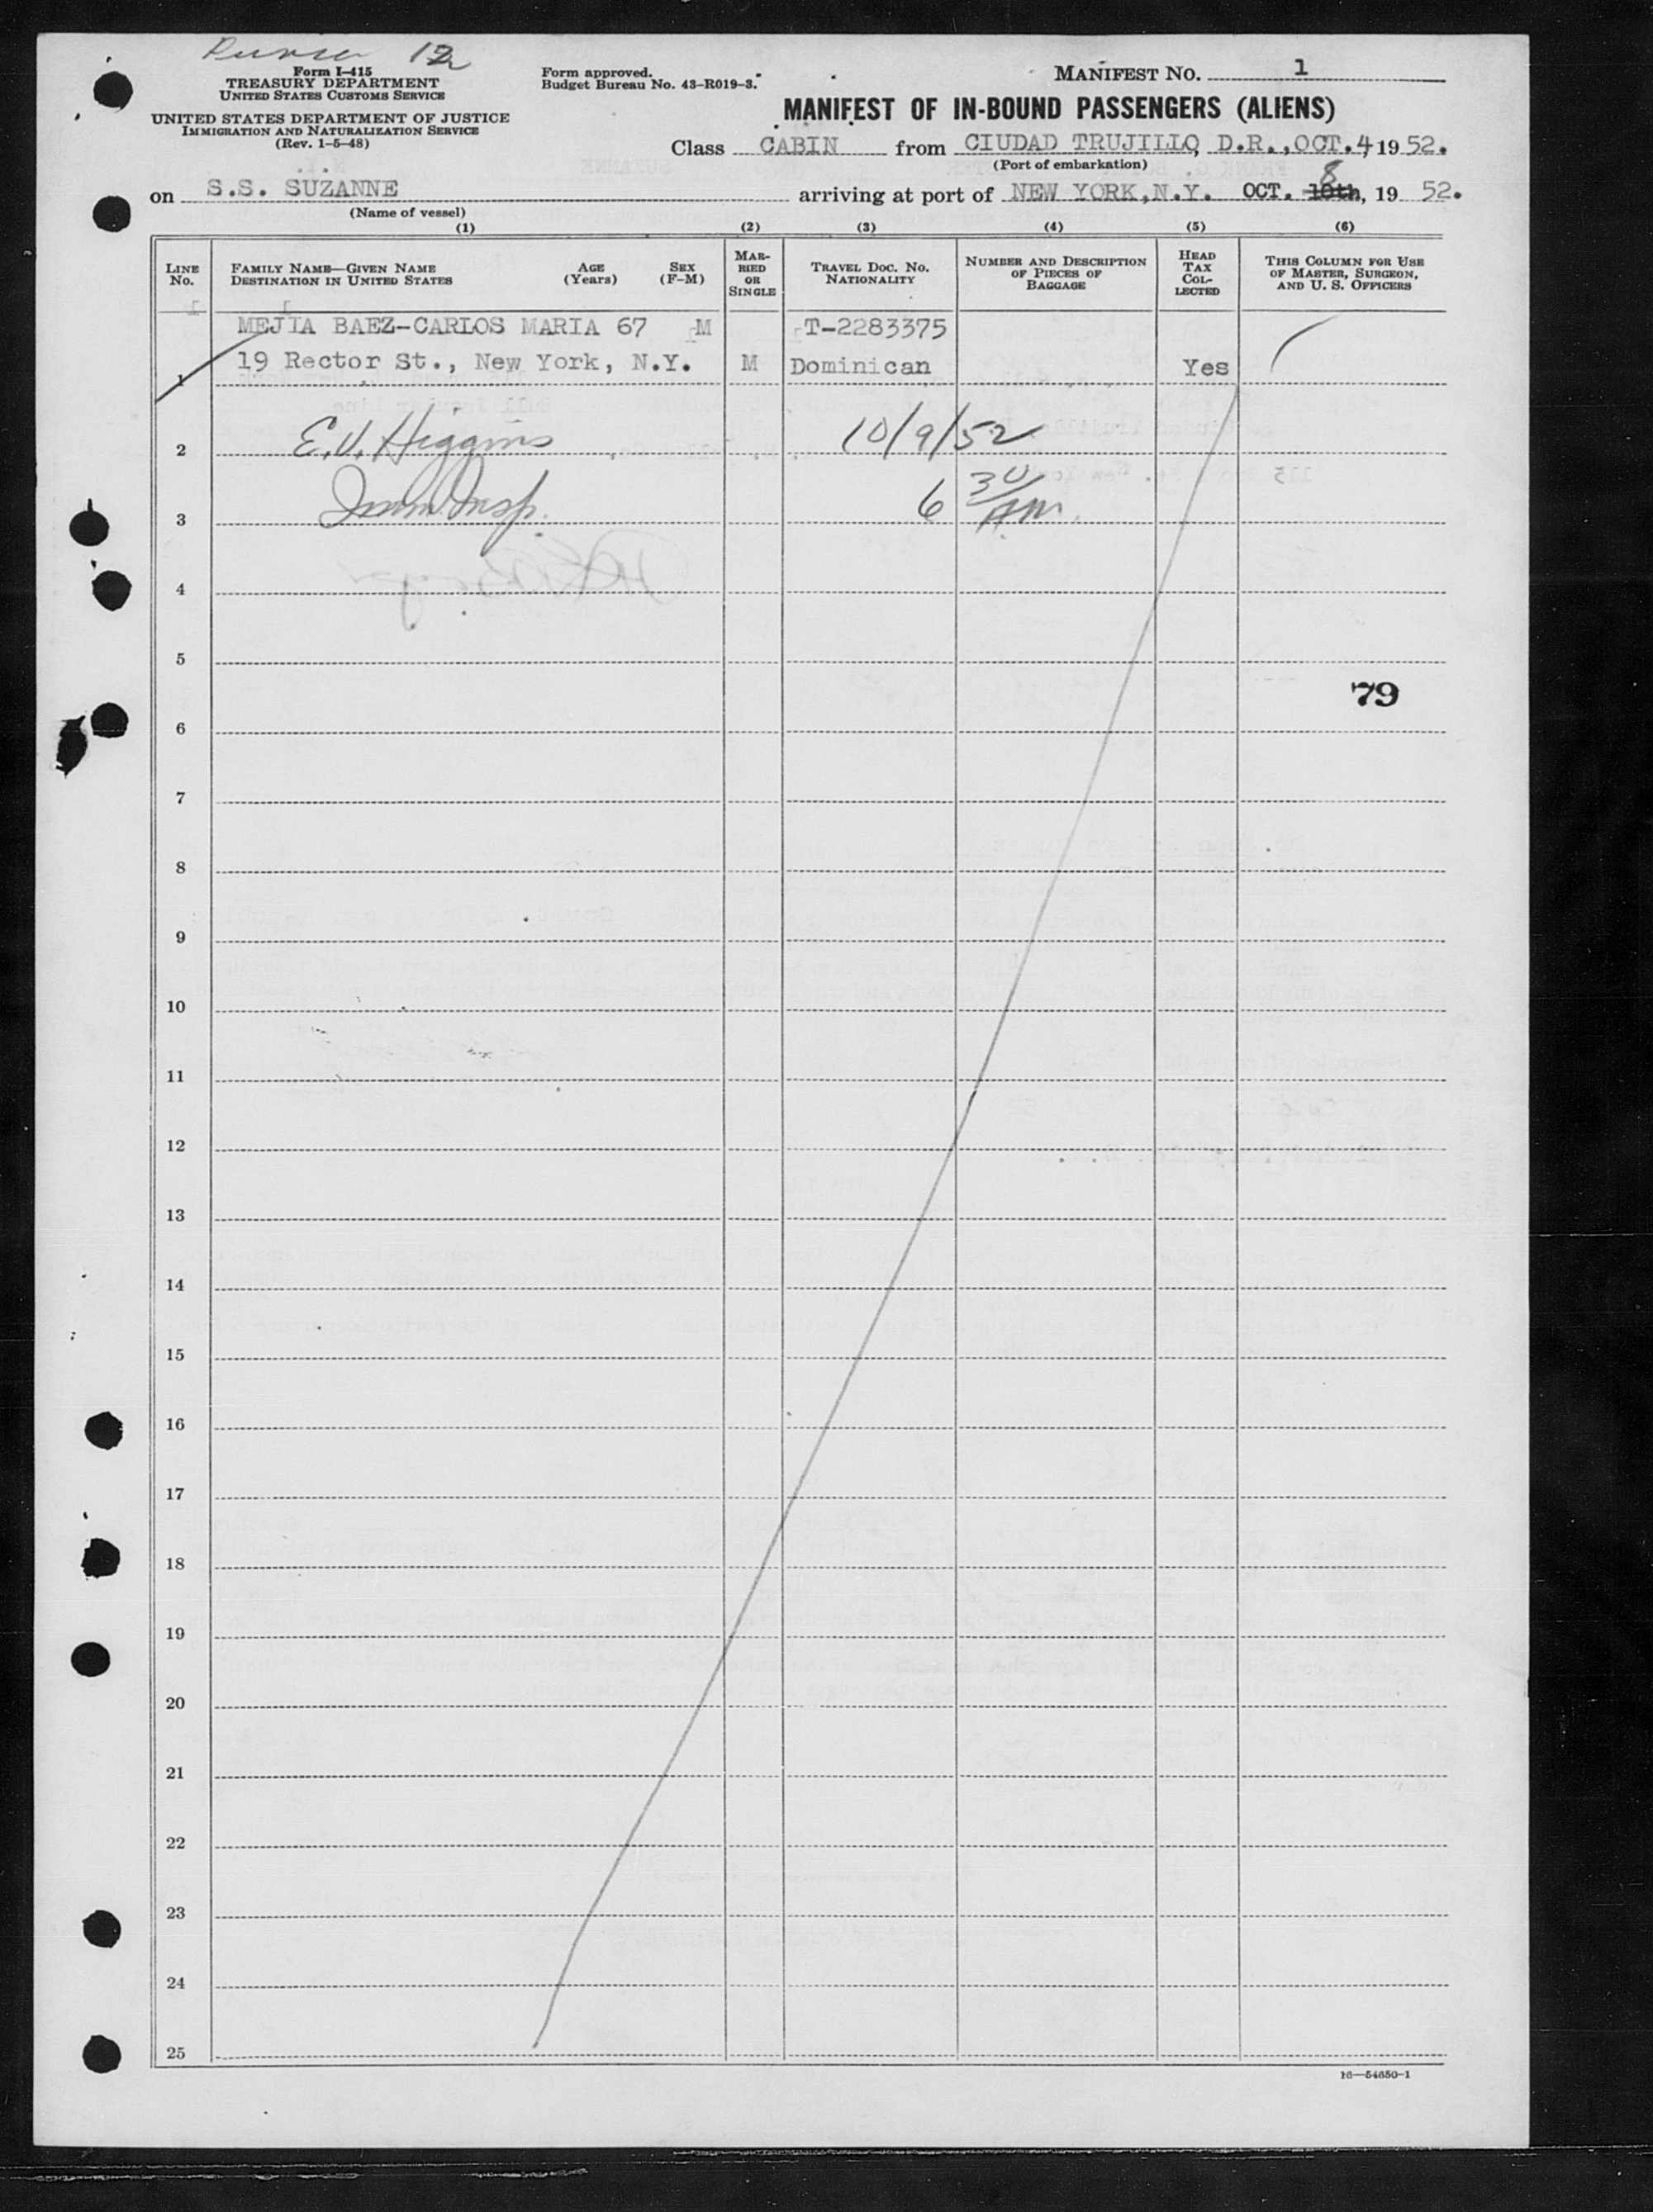 12
Form I-415
TREASURY DEPARTMENT
UNITED STATES CUSTOMS SERVICE
UNITED STATES DEPARTMENT OF JUSTICE
IMMIGRATION AND NATURALIZATION SERVICE
(Rev. 1-5-48)
Form approved.
Budget Bureau No. 43-R019-3.
MANIFEST NO. 1
MANIFEST OF IN-BOUND PASSENGERS (ALIENS)
Class CABIN from CIUDAD TRUJILLO, D.R., OCT. 4, 1952.
(Port of embarkation)
on S.S. SUZANNE arriving at port of NEW YORK, N.Y. OCT. 10th 8, 19 52.
(Name of vessel)
(1) (2) (3) (4) (5) (6)
LINE NO.
FAMILY NAME—GIVEN NAME
DESTINATION IN UNITED STATES
AGE (Years)
SEX (F-M)
MARRIED OR SINGLE
TRAVEL DOC. NO.
NATIONALITY
NUMBER AND DESCRIPTION OF PIECES OF BAGGAGE
HEAD TAX COLLECTED
THIS COLUMN FOR USE OF MASTER, SURGEON, AND U. S. OFFICERS
MEJIA BAEZ-CARLOS MARIA 67 M T-2283375
1 19 Rector St., New York, N.Y. M Dominican Yes
2 E.V. Higgins 10/9/52
3 Imm. Insp. 6 30 AM.
4
5
79
6
7
8
9
10
11
12
13
14
15
16
17
18
19
20
21
22
23
24
25
16—54650-1